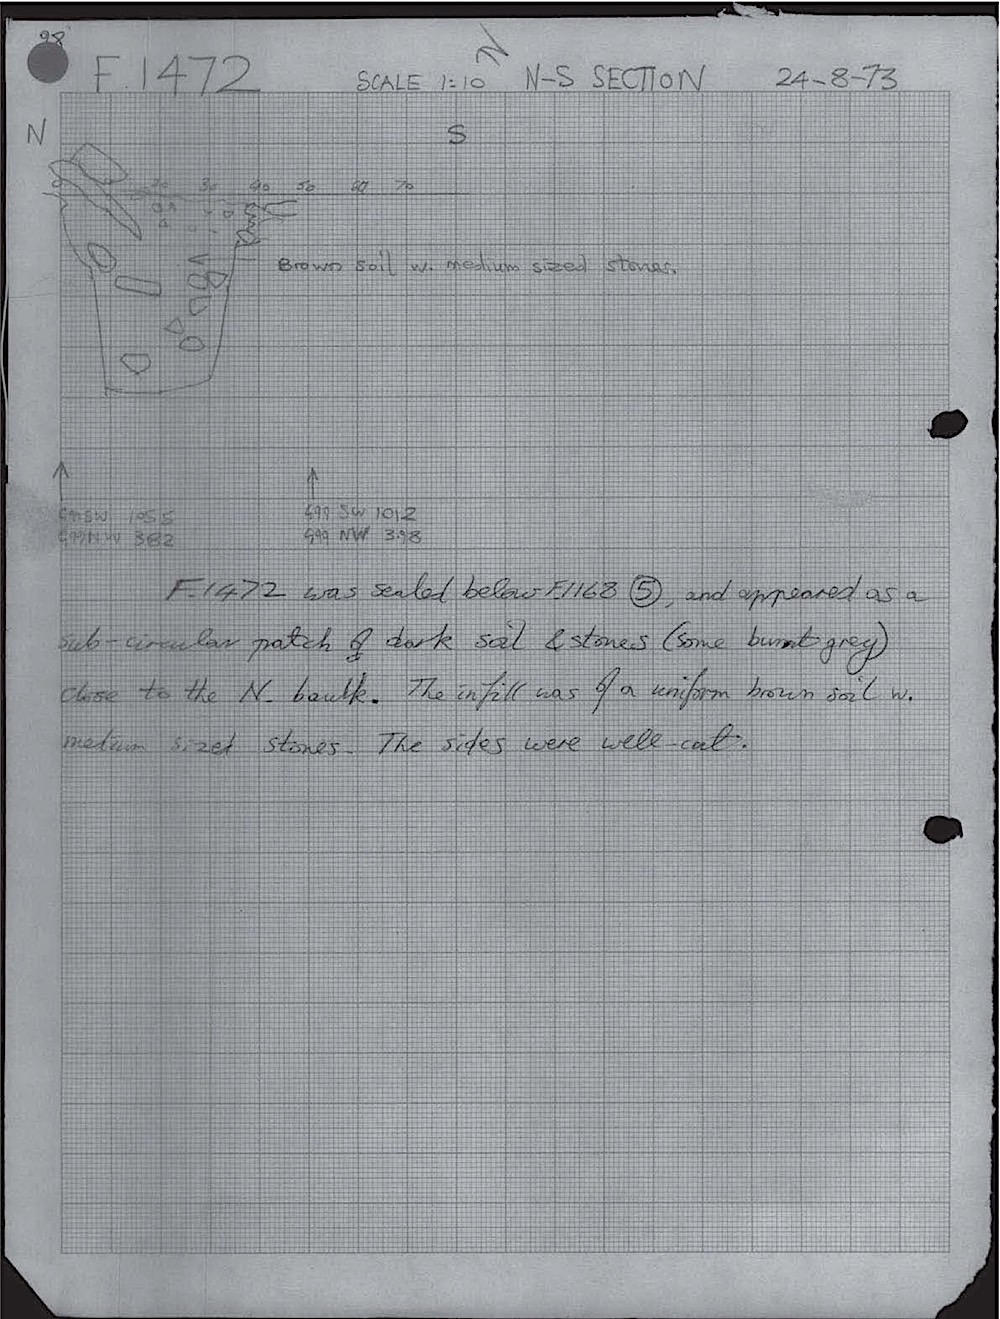 98
F.1472 SCALE 1:10 N-S SECTION 24-8-73
N S
20 30 40 50 60 70
Brown soil w. medium sized stones.
SW 1055 G99 SW 1012
G99 NW 382 G99 NW 398
F.1472 was sealed below F1168 ⑤, and appeared as a
sub-circular patch of dark soil & stones (some burnt grey)
close to the N. baulk. The infill was of a uniform brown soil w.
medium sized stones. The sides were well-cut.